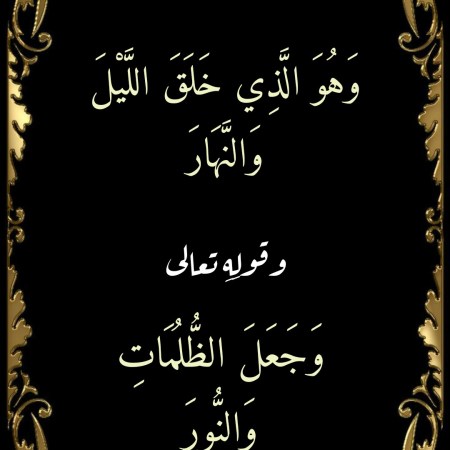 وَهُوَ الَّذِي خَلَقَ اللَّيْلَ
وَالنَّهَارَ
وقولِهِ تعالى
وَجَعَلَ الظُّلُمَاتِ
وَالنُّورَ